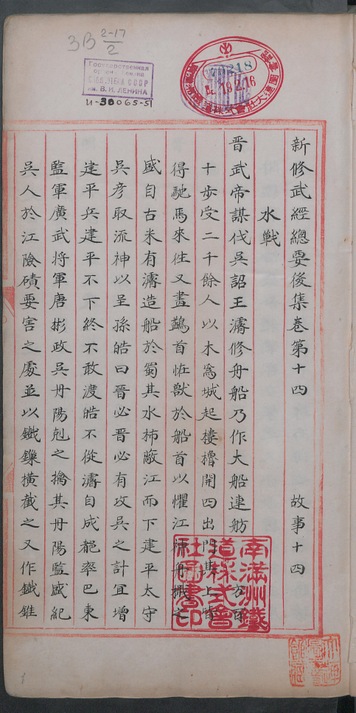 3B 2-17/2
Государственная
СССР
им. В. И. ЛЕНИНА
И-38065-51
新修武經總要後集卷第十四　故事十四
水戰
晉武帝謀伐吳詔王濬修舟船乃作大船連舫方百
十步受二千餘人以木為城起樓櫓開四出門其上皆
得馳馬來往又畫鷁首怪獸於船首以懼江神舟楫之
盛自古未有濬造船於蜀其水柿蔽江而下建平太守
吳彥取流柿以呈孫皓曰晉必有攻吳之計宜增
建平兵建平不下終不敢渡皓不從濬自成都率巴東
監軍廣武將軍唐彬攻吳丹陽剋之擒其丹陽監盛紀
吳人於江險磧要害之處並以鐵鎖橫截之又作鐵錐
南滿洲鐵
道株式會
社圖書印